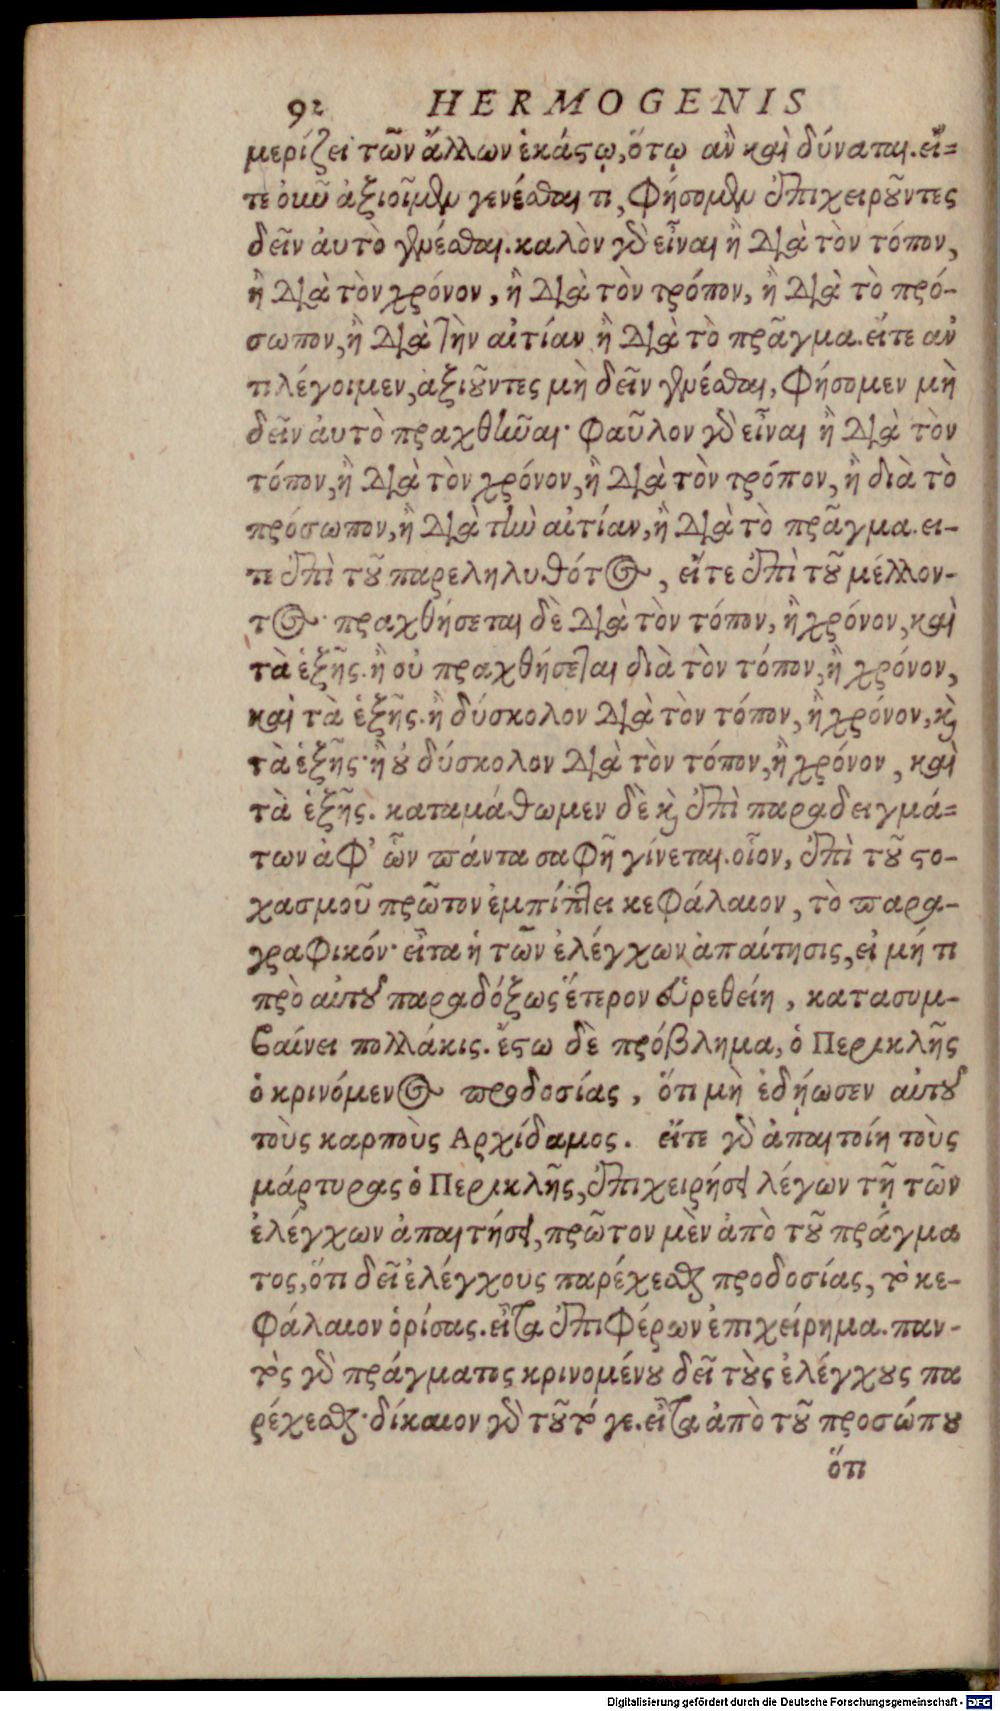 92 HERMOGENIS
μερίζει τῶν ἄλλων ἑκάστῳ, ὅτῳ ἂν καὶ δύναται. εἴ-
τε οὖν ἀξιοῖμεν γενέσθαι τι, φήσομεν ἐπιχειροῦντες
δεῖν αὐτὸ γενέσθαι. καλὸν γὸ εἶναι ἢ διὰ τὸν τόπον,
ἢ διὰ τὸν χρόνον, ἢ διὰ τὸν τρόπον, ἢ διὰ τὸ πρό-
σωπον, ἢ διὰ τὴν αἰτίαν ἢ διὰ τὸ πρᾶγμα. εἴτε αὖ
τι λέγοιμεν, ἀξιοῦντες μὴ δεῖν γενέσθαι, φήσομεν μὴ
δεῖν αὐτὸ πραχθῆναι· φαῦλον γὸ εἶναι ἢ διὰ τὸν
τόπον, ἢ διὰ τὸν χρόνον, ἢ διὰ τὸν τρόπον, ἢ διὰ τὸ
πρόσωπον, ἢ διὰ τὴν αἰτίαν, ἢ διὰ τὸ πρᾶγμα. ει-
τε ἐπὶ τοῦ παρεληλυθότος, εἴτε ἐπὶ τοῦ μέλλον-
τος· πραχθήσεται δὲ διὰ τὸν τόπον, ἢ χρόνον, καὶ
τὰ ἑξῆς. ἢ οὐ πραχθήσεται διὰ τὸν τόπον, ἢ χρόνον,
καὶ τὰ ἑξῆς. ἢ δύσκολον διὰ τὸν τόπον, ἢ χρόνον, κὶ
τὰ ἑξῆς· ἢ οὐ δύσκολον διὰ τὸν τόπον, ἢ χρόνον, καὶ
τὰ ἑξῆς. καταμάθωμεν δὲ κὶ ἐπὶ παραδειγμά-
των ἀφ’ ὧν πάντα σαφῆ γίνεται. οἷον, ἐπὶ τοῦ στο-
χασμοῦ πρῶτον ἐμπίπτει κεφάλαιον, τὸ παρα-
γραφικόν· εἶτα ἡ τῶν ἐλέγχων ἀπαίτησις, εἰ μή τι
πρὸ αὐτοῦ παραδόξως ἕτερον εὑρεθείη, κατασυμ-
βαίνει πολλάκις. ἔστω δὲ πρόβλημα, ὁ Περικλῆς
ὁ κρινόμενος προδοσίας, ὅτι μὴ ἐδῄωσεν αὐτοῦ
τοὺς καρποὺς Αρχίδαμος. εἴτε γὸ ἀπαιτοίη τοὺς
μάρτυρας ὁ Περικλῆς, ἐπιχειρήσει λέγων τῇ τῶν
ἐλέγχων ἀπαιτήσει, πρῶτον μὲν ἀπὸ τοῦ πράγμα
τος, ὅτι δεῖ ἐλέγχους παρέχεσθαι προδοσίας, τὸ κε-
φάλαιον ὁρίσας. εἶτα ἐπιφέρων ἐπιχείρημα. παν-
τὸς γὸ πράγματος κρινομένου δεῖ τοὺς ἐλέγχους πα
ρέχεσθαι· δίκαιον γὸ τοῦτό γε. εἶτα ἀπὸ τοῦ προσώπου
ὅτι
Digitalisierung gefördert durch die Deutsche Forschungsgemeinschaft - DFG